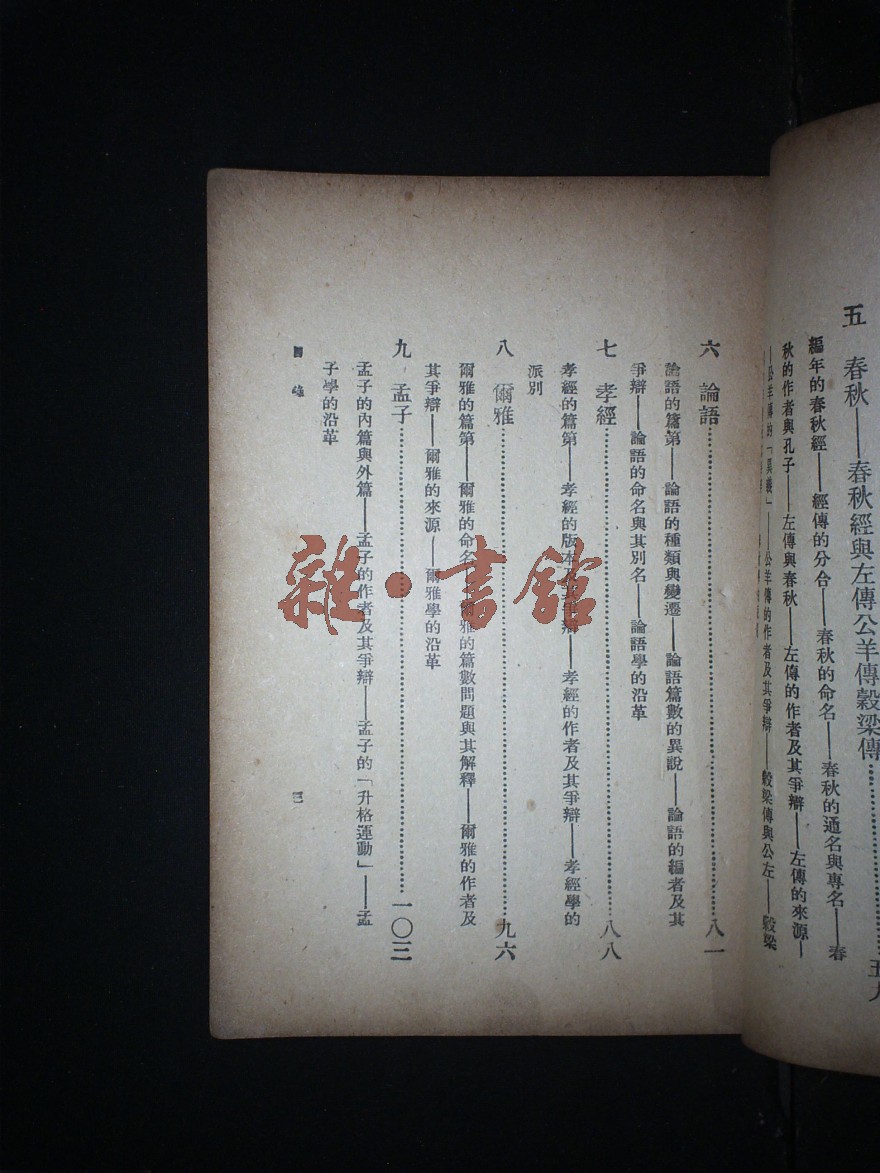 五　春秋——春秋經與左傳公羊傳穀梁傳
編年的春秋經——經傳的分合——春秋的命名——春秋的通名與專名——春
秋的作者與孔子——左傳與春秋——左傳的作者及其爭辯——左傳的來源—
——公羊傳的「異義」——公羊傳的作者及其爭辯——穀梁傳與公左——穀梁
六　論語……八一
論語的篇第——論語的種類與變遷——論語篇數的異說——論語的編者及其
爭辯——論語的命名與其別名——論語學的沿革
七　孝經……八八
孝經的篇第——孝經的版本及其爭辯——孝經的作者及其爭辯——孝經學的
派別
八　爾雅……九六
爾雅的篇第——爾雅的命名——爾雅的篇數問題與其解釋——爾雅的作者及
其爭辯——爾雅的來源——爾雅學的沿革
九　孟子……一〇三
孟子的內篇與外篇——孟子的作者及其爭辯——孟子的「升格運動」——孟
子學的沿革
目錄
三
雜·書館